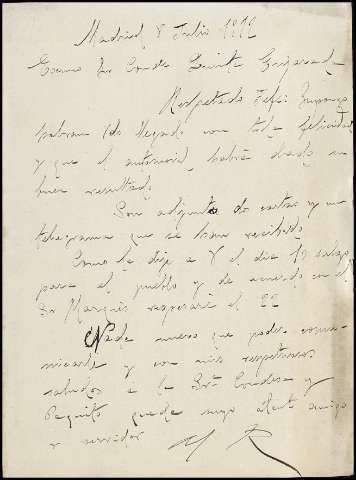 Madrid 8 Julio 1912
Excmo Sr Conde
Respetado Jefe: Supongo
habran ido llegado con toda felicidad
y que el automovil habrá dado un
buen resultado
Son adjuntas do cartas y un
telegrama que se han recibido
Como le dije a V el dia 13 salgo
para el pueblo y de acuerdo con el
Sr Marqués regresaré el 22
Nada nuevo que poder comu-
nicarle y con mis respetuosos
saludos á la Sra Condesa y
Paquito queda suyo atent amigo
y servidor
M R